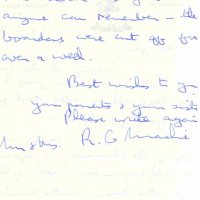 anyone can remember – the
boarders were cut off for
over a week.
Best wishes to you
your parents & your sister
Please write again
R. G.